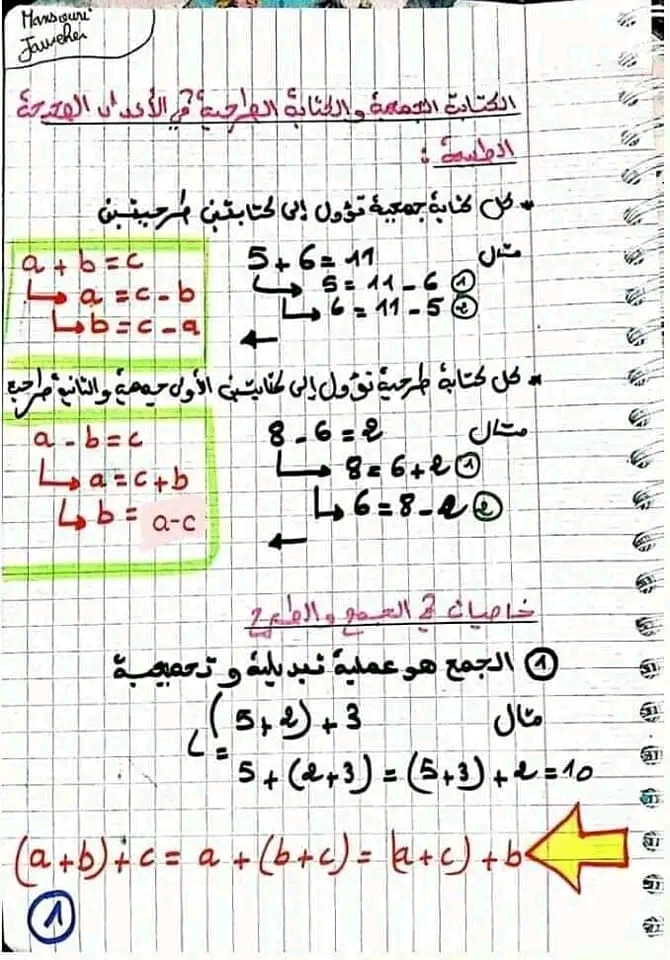 Mansouri
Jaweher
الكتابة الجمعية والكتابة الطرحية في الأعداد الصحيحة
الطبيعية :
* كل كتابة جمعية تؤول إلى كتابتين طرحيتين
مثال
5 + 6 = 11
↳ 5 = 11 - 6 ①
↳ 6 = 11 - 5 ②
a + b = c
↳ a = c - b
↳ b = c - a
* كل كتابة طرحية تؤول إلى كتابتين الأولى جمعية والثانية طرحية
مثال
8 - 6 = 2
↳ 8 = 6 + 2 ①
↳ 6 = 8 - 2 ②
a - b = c
↳ a = c + b
↳ b = a-c
خاصيات في الجمع والطرح
① الجمع هو عملية تبديلية وتجميعية
مثال
(5 + 2) + 3
= 5 + (2 + 3) = (5 + 3) + 2 = 10
(a + b) + c = a + (b + c) = (a + c) + b
①